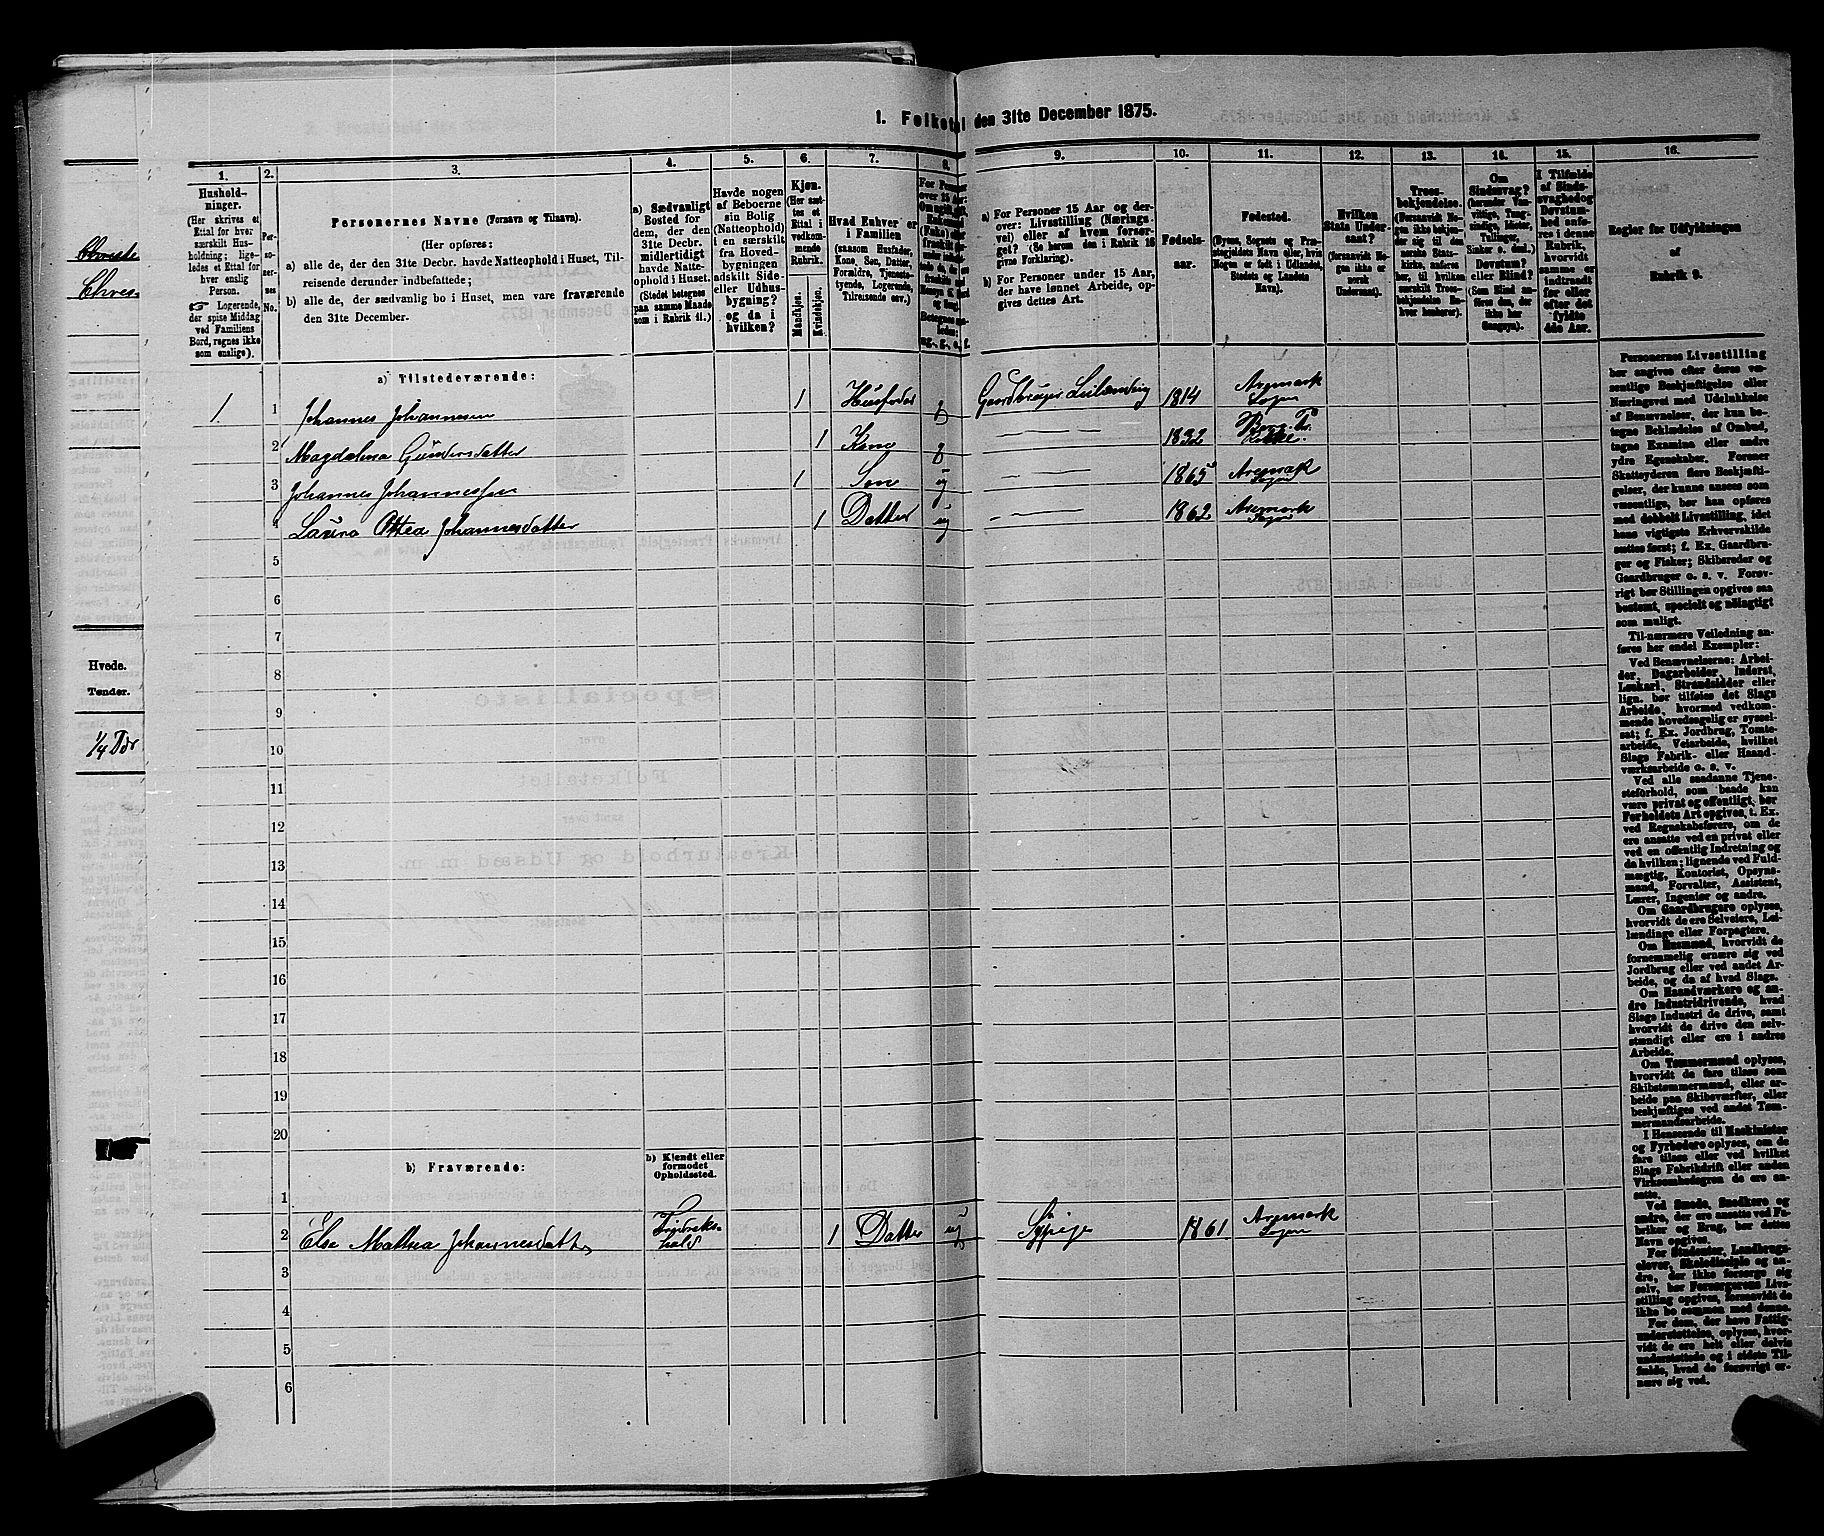 1. Folketal den 31te December 1875.
1.
2.
3.
4.
5.
6.
7.
8.
9.
10.
11.
12.
13.
14.
15.
16.
Hushold-
ninger.
(Her skrives et
Ettal for hver
særskilt Hus-
holdning; lige-
ledes et Ettal for
hver enslig
Person.
Logerende,
der spise Middag
ved Familiens
Bord, regnes ikke
som enslige).
Per-
so-
ner-
nes
No.
Personernes Navne (Fornavn og Tilnavn).
(Her opføres:
a) alle de, der den 31te Decbr. havde Natteophold i Huset, Til-
reisende derunder indbefattede;
b) alle de, der sædvanlig bo i Huset, men vare fraværende
den 31te December.
a) Sædvanligt
Bosted for
dem, der den
31te Decbr.
midlertidigt
havde Natte-
ophold i Huset.
(Stedet betegnes
paa samme Maade
som i Rubrik 11.)
Havde nogen
af Beboerne
sin Bolig
(Natteophold)
i en særskilt
fra Hoved-
bygningen
adskilt Side-
eller Udhus-
bygning?
og da i
hvilken?
Kjøn.
(Her sæt-
tes et
Ettal i
vedkom-
mende
Rubrik.
Mandkjøn.
Kvindekjøn.
Hvad Enhver er
i Familien
(saasom Husfader,
Kone, Søn, Datter,
Forældre, Tjeneste-
tyende, Logerende,
Tilreisende osv.)
a) For Personer 15 Aar og der-
over: Livsstilling (Nærings-
vei) eller af hvem forsør-
get? (Se herom den i Rubrik 16
givne Forklaring).
b) For Personer under 15 Aar,
der have lønnet Arbeide, op-
gives dettes Art.
Fødsels-
aar.
Fødested.
(Byens, Sognets og Præ-
stegjeldets Navn eller, hvis
Nogen er født i Udlandet,
Stedets og Landets
Navn).
Hvilken
Stats Under-
saat?
(forsaavidt No-
gen ikke er
norsk
Undersaat).
Troes-
bekjendelse.
(Forsaavidt No-
gen ikke bekjen-
der sig til den
norske Stats-
kirke, anføres
her, til hvilken
særskilt Troes-
bekjendelse En-
hver henhører).
Om
Sindssvag?
(herunder Van-
vittige, Tung-
sindige, Idioter,
Tullinger,
Sinker o. desl.)
Døvstum?
eller Blind?
(Som Blind an-
føres den, der
ikke har
Gangsyn).
I Tilfælde
af Sinds-
svaghed og
Døvstum-
hed anfø-
res i denne
Rubrik,
hvorvidt
samme er
indtraadt
før eller
efter det
fyldte
4de Aar.
Regler for Udfyldningen
af
Rubrik 9.
a) Tilstedeværende:
1 1 Johannes Johannesen 1 Husfader g Gaardbruger Leilænding 1814 Aremark Sogn
2 Magdalena Gundersdatter 1 Kone g 1822
3 Johannes Johannessen 1 Søn ug 1865 Aremark Sogn
4 Laura Othea Johannesdatter 1 Datter ug 1862 Aremark Sogn
5
6
7
8
9
10
11
12
13
14
15
16
17
18
19
20
b) Fraværende:
b) Kjendt eller
formodet
Opholdssted.
1
2 Else Mathea Johannesdatter Fredriks-
hald 1 Datter ug Sypige 1861 Aremark Sogn
3
4
5
6
Personernes Livsstilling
bør angives efter deres væ-
sentlige Beskjæftigelse eller
Næringsvei med Udelukkelse
af Benævnelser, der kun be-
tegne Beklædelse af Ombud,
tagne Examina eller andre
ydre Egenskaber. Forener
Skatteyderen flere Beskjæfti-
gelser, der kunne ansees som
væsentlige, bør han opføres
med dobbelt Livsstilling, idet
hans vigtigste Erhvervskilde
sættes først; f. Ex. Gaardbru-
ger og Fisker; Skibsreder og
Gaardbruger o. s. v. Forøv-
rigt bør Stillingen opgives saa
bestemt, specielt og nøiagtigt
som muligt.
Til nærmere Veiledning an-
føres her endel Exempler:
Ved Benævnelserne: Arbei-
der, Dagarbeider, Inderst,
Løskarl, Strandsidder eller
lign. bør tilføies det Slags
Arbeide, hvormed vedkom-
mende hovedsagelig er syssel-
sat; f. Ex. Jordbrug, Tomte-
arbeide, Veiarbeide, hvilket
Slags Fabrik- eller Haand-
værksarbeide o. s. v.
Ved alle saadanne Tjene-
steforhold, som baade kan
være privat og offentligt, bør
Forholdets Art opgives, t. Ex.
ved Regnskabsførere, om de
ere ansatte ved en privat eller
ved en offentlig Indretning og
da hvilken; lignende ved Fuld-
mægtig, Kontorist, Opsyns-
mand, Forvalter, Assistent,
Lærer, Ingeniør og andre.
Om Gaardbrugere oplyses,
hvorvidt de ere Selveiere, Lei-
lændinge eller Forpagtere.
Om Husmænd, hvorvidt de
fornemmelig ernære sig ved
Jordbrug eller ved andet Ar-
beide, og da af hvad Slags.
Om Haandværkere og an-
dre Industridrivende, hvad
Slags Industri de drive, samt
hvorvidt de drive den selv-
stændigt eller ere i andres
Arbeide.
Om Tømmermænd oplyses,
hvorvidt de fare tilsøs som
Skibstømmermænd, eller ar-
beide paa Skibsværfter, eller
beskjæftiges ved andet Tøm-
mermandsarbeide.
I Henseende til Maskinister
og Fyrbødere oplyses, om de
fare tilsøs eller ved hvilket
Slags Fabrikdrift eller anden
Virksomhedsgren de ere an-
satte.
Ved Smede, Snedkere og
andre, der ere ansatte ved Fa-
briker og Brug, bør dettes
Navn opgives.
For Studenter, Landbrugs-
elever, Skoledisciple og an-
dre, der ikke forsørge sig
selv, bør Forsørgerens Livs-
stilling opgives, forsaavidt de
ikke bo sammen med denne.
For dem, der have Fattig-
understøttelse, oplyses, hvor-
vidt de ere helt eller delvis
understøttede og i sidste Til-
fælde, hvad de forøvrigt er-
nære sig ved.
Hvede.
Tønder.
1/4 Tdr